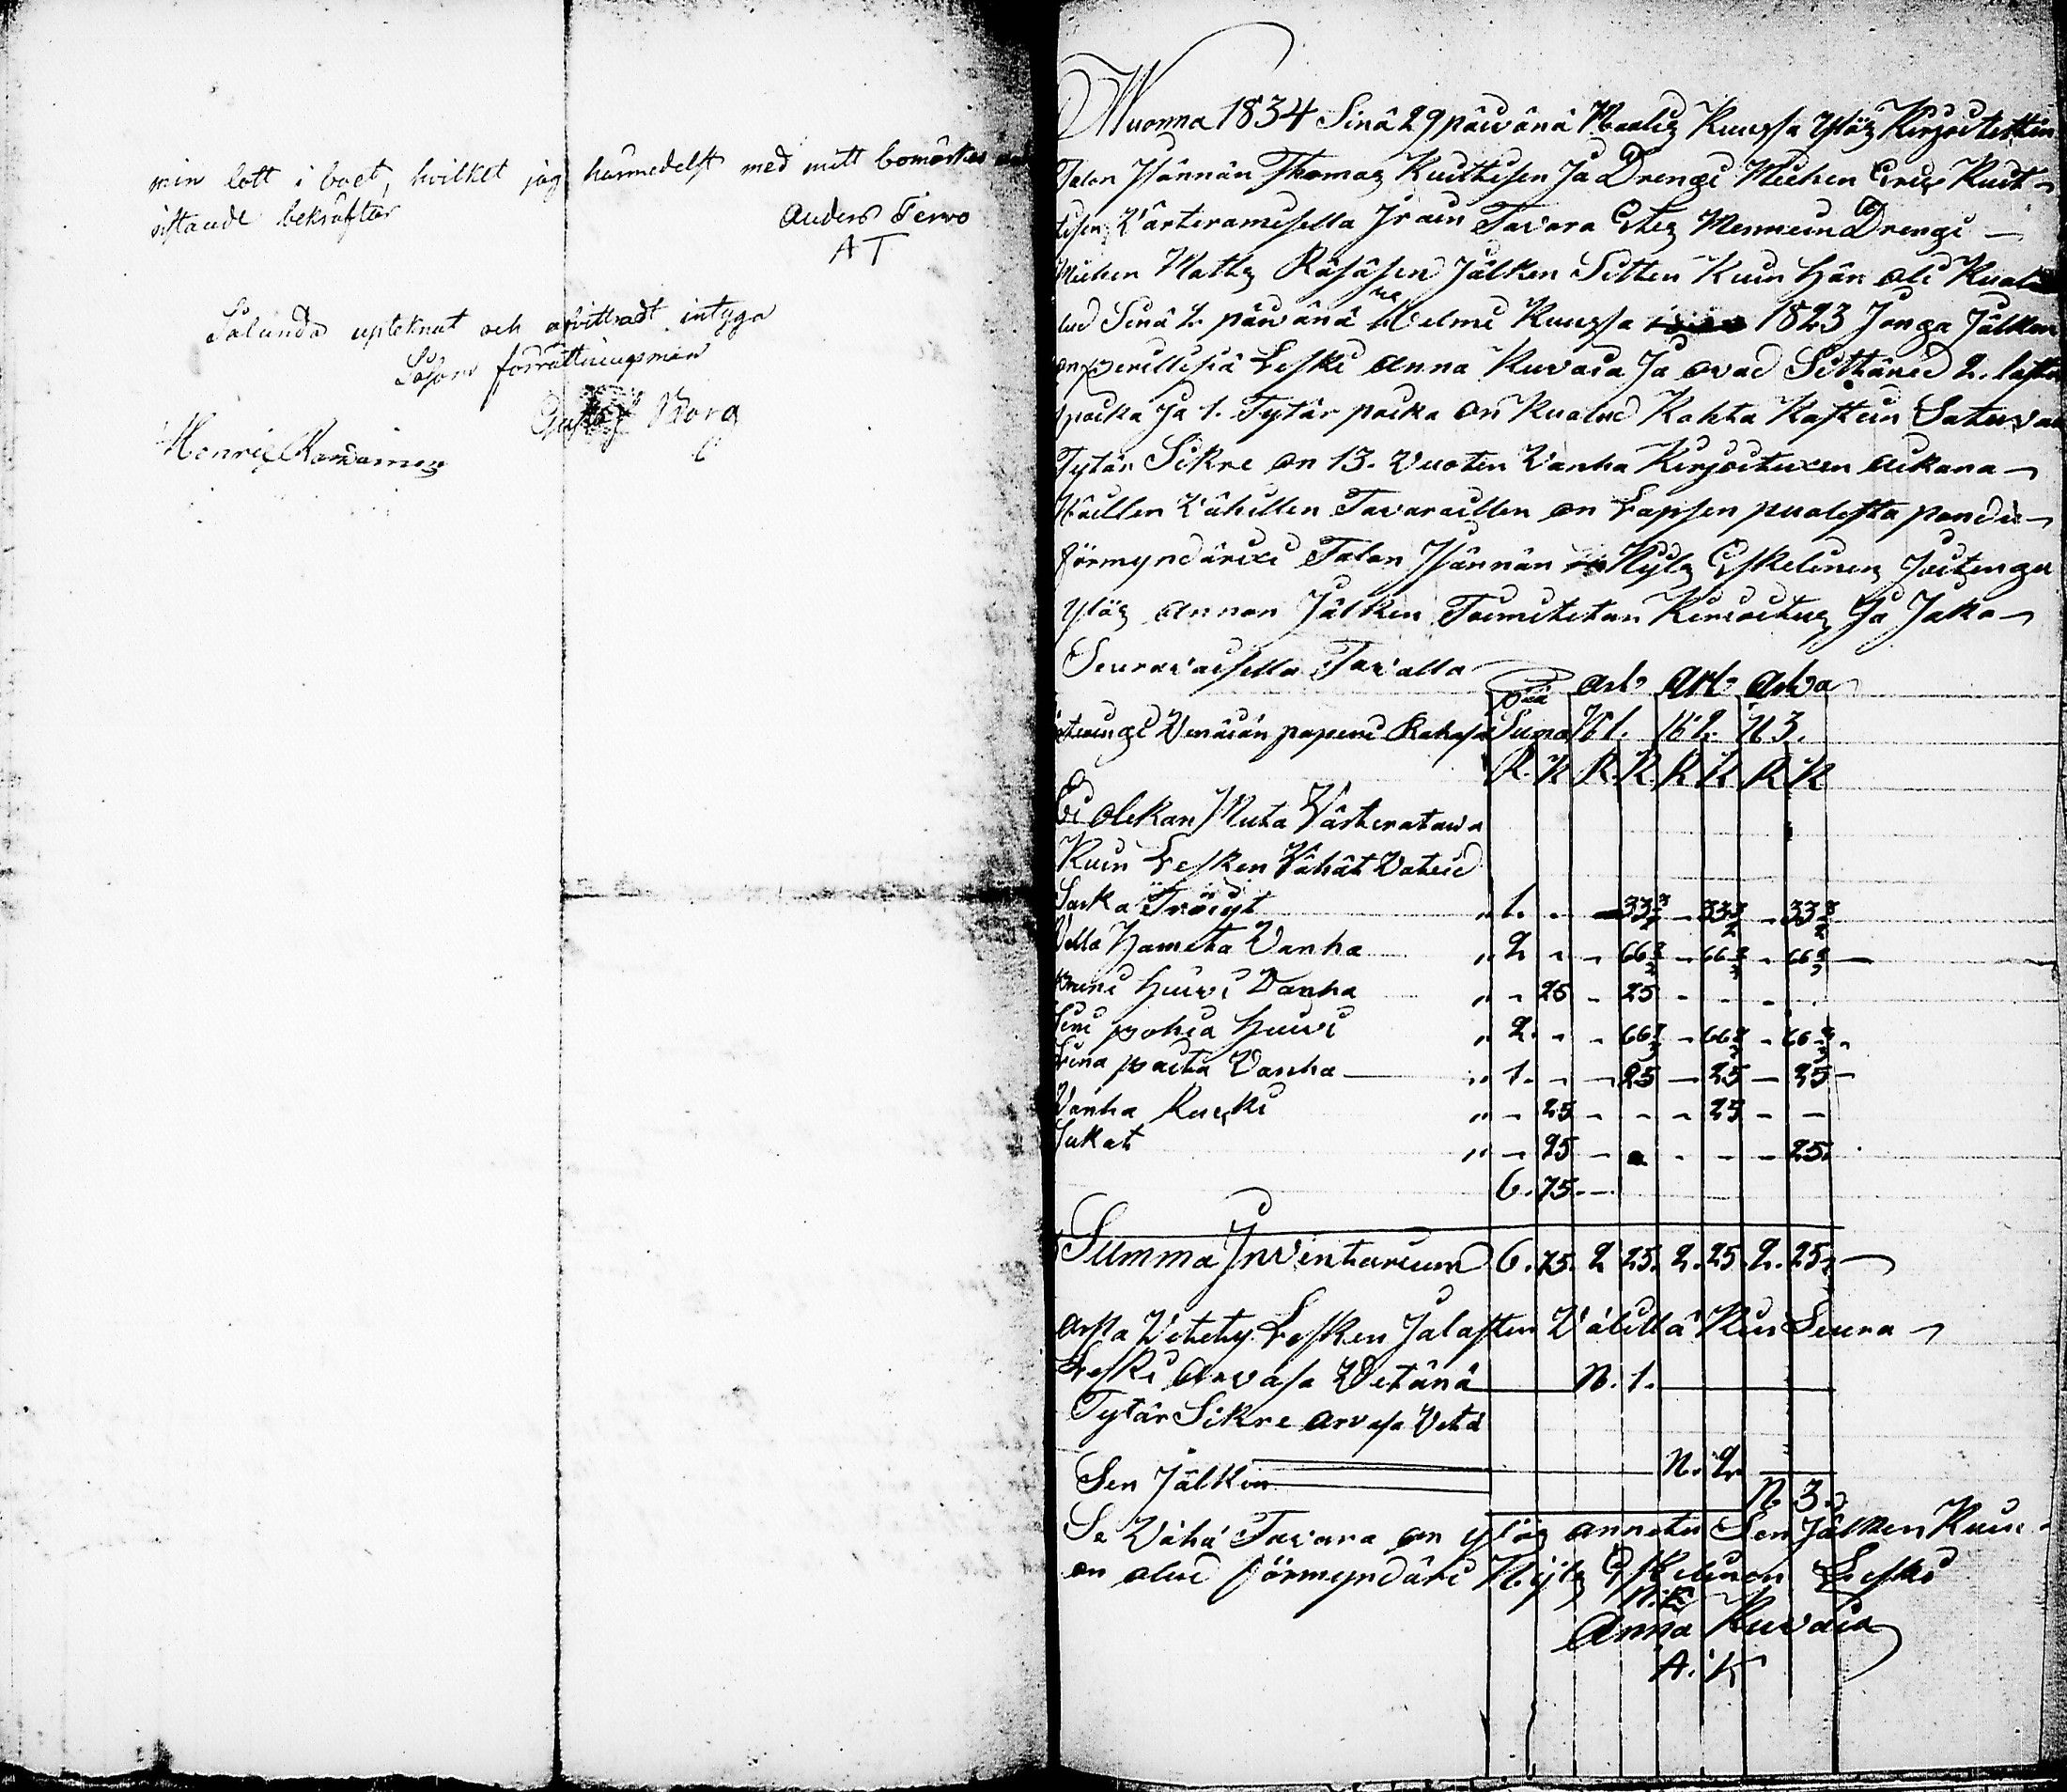 min lott i boet, hvilket jag härmedelst med mitt bomärkes
ristande bekräftar
Anders Tervo
AT
Sålunda upteknat och afvittradt intyga
Låsom förrättningsmän
Gustaf Borg
Henric
Wuonna 1834 Sinä 29 päivänä Maalis Kuussa Ylös Kirjoitettin
Talon Isännän Thomas Kuittisen Ja Drengi Miehen Erik Kuit-
tisen Värteramisella Irain Tavara Edes Mennein Drengi
Miehen Matts Räsäsen Jälken Sitten Kuin Hän oli Kuol
lud Sinä 2 päivänä Helmi Kuussa 1823 Jonga Jälken
on perillisiä Leski Anna Kuvaia Ja ovad Sithäned 2. lasta
poika Ja 1. Tytär poika on Kuolud Kahta Kastein
Tytär Sikre on 13. Vuoten Vanha Kirjoituxen aikana
Näillen Vähillen Tavaraillen on Lapsen puolesta pandu
förmyndärixi Talon Isännän Nyls Eskelinen
Ylös annon Jälken Toimitetan Kirjoitus Ja Jako
Seuravaisella Tavalla
pää arb arb arva
Venäiän paperi Rahasa Suma N 1. N 2. N 3.
R. K R. K. R K R K
Ei olekan Muta Värteratava
Kuin Lesken Vähät Vateid
Sarka Tröiyt " 1. - - 33 1/3 - 33 1/3 - 33 1/3
Villa Hameta Vanha " 2 - - 66 2/3 - 66 2/3 - 66 2/3
Huivi Vanha " - 25 - 25 - - - -
pohia Huivi " 2. - - 66 2/3 - 66 2/3 - 66 2/3
paita Vanha " 1. - - 25 - 25 - 25
Vanha " - 25 - - - 25 - -
Sukat " - 25 - - - - - 25.
6. 75.
Summa Inventarium 6. 75. 2 25. 2. 25. 2. 25.
arpa Vetety Lesken Ja lasten Välillä Kuin Seura
Leski arvasa Vetänä N. 1.
Tytär Sikre arvasa Vetä
N. 2
Sen Jälken
N 3.
Se Vähä Tavara on ylös annetu Sen Jälken Kuin
on olud förmyndäri Nyls Eskelinen Leski
N. E
Anna Kuvaia
A. K